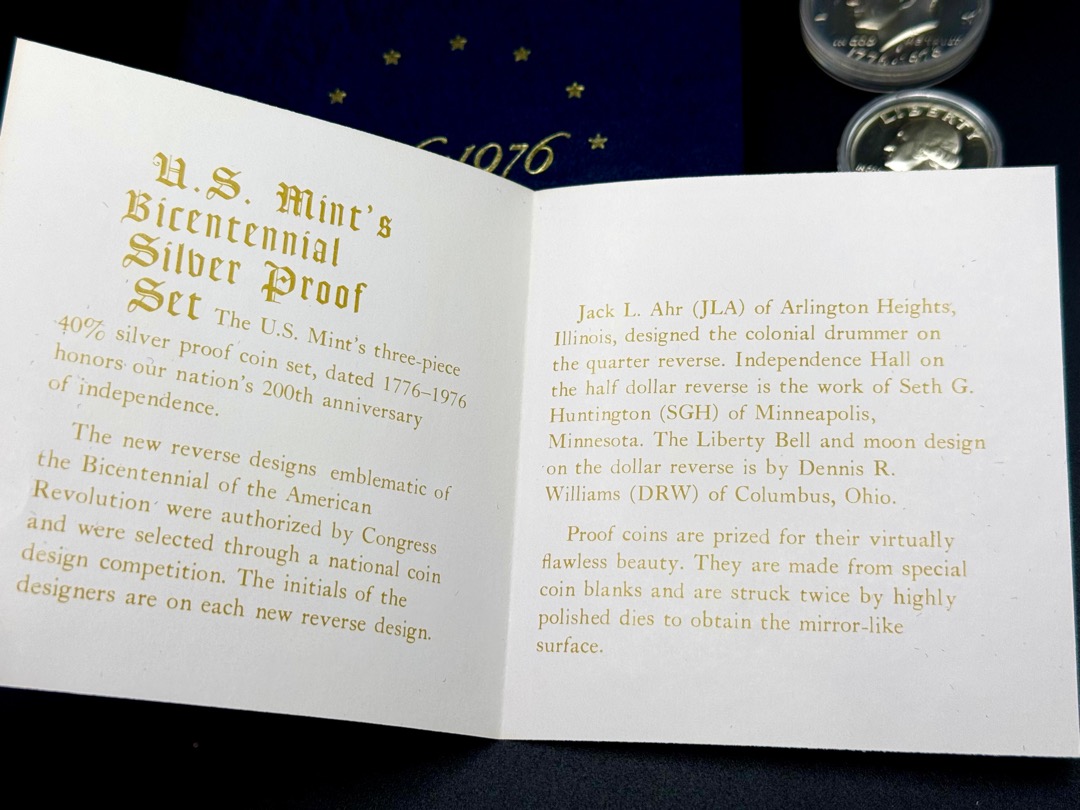 1976
IN GOD WE TRUST
1776·1976
LIBERTY
U.S. Mint's
Bicentennial
Silver Proof
Set The U.S. Mint's three-piece
40% silver proof coin set, dated 1776–1976
honors our nation's 200th anniversary
of independence.
The new reverse designs emblematic of
the Bicentennial of the American
Revolution were authorized by Congress
and were selected through a national coin
design competition. The initials of the
designers are on each new reverse design.
Jack L. Ahr (JLA) of Arlington Heights,
Illinois, designed the colonial drummer on
the quarter reverse. Independence Hall on
the half dollar reverse is the work of Seth G.
Huntington (SGH) of Minneapolis,
Minnesota. The Liberty Bell and moon design
on the dollar reverse is by Dennis R.
Williams (DRW) of Columbus, Ohio.
Proof coins are prized for their virtually
flawless beauty. They are made from special
coin blanks and are struck twice by highly
polished dies to obtain the mirror-like
surface.